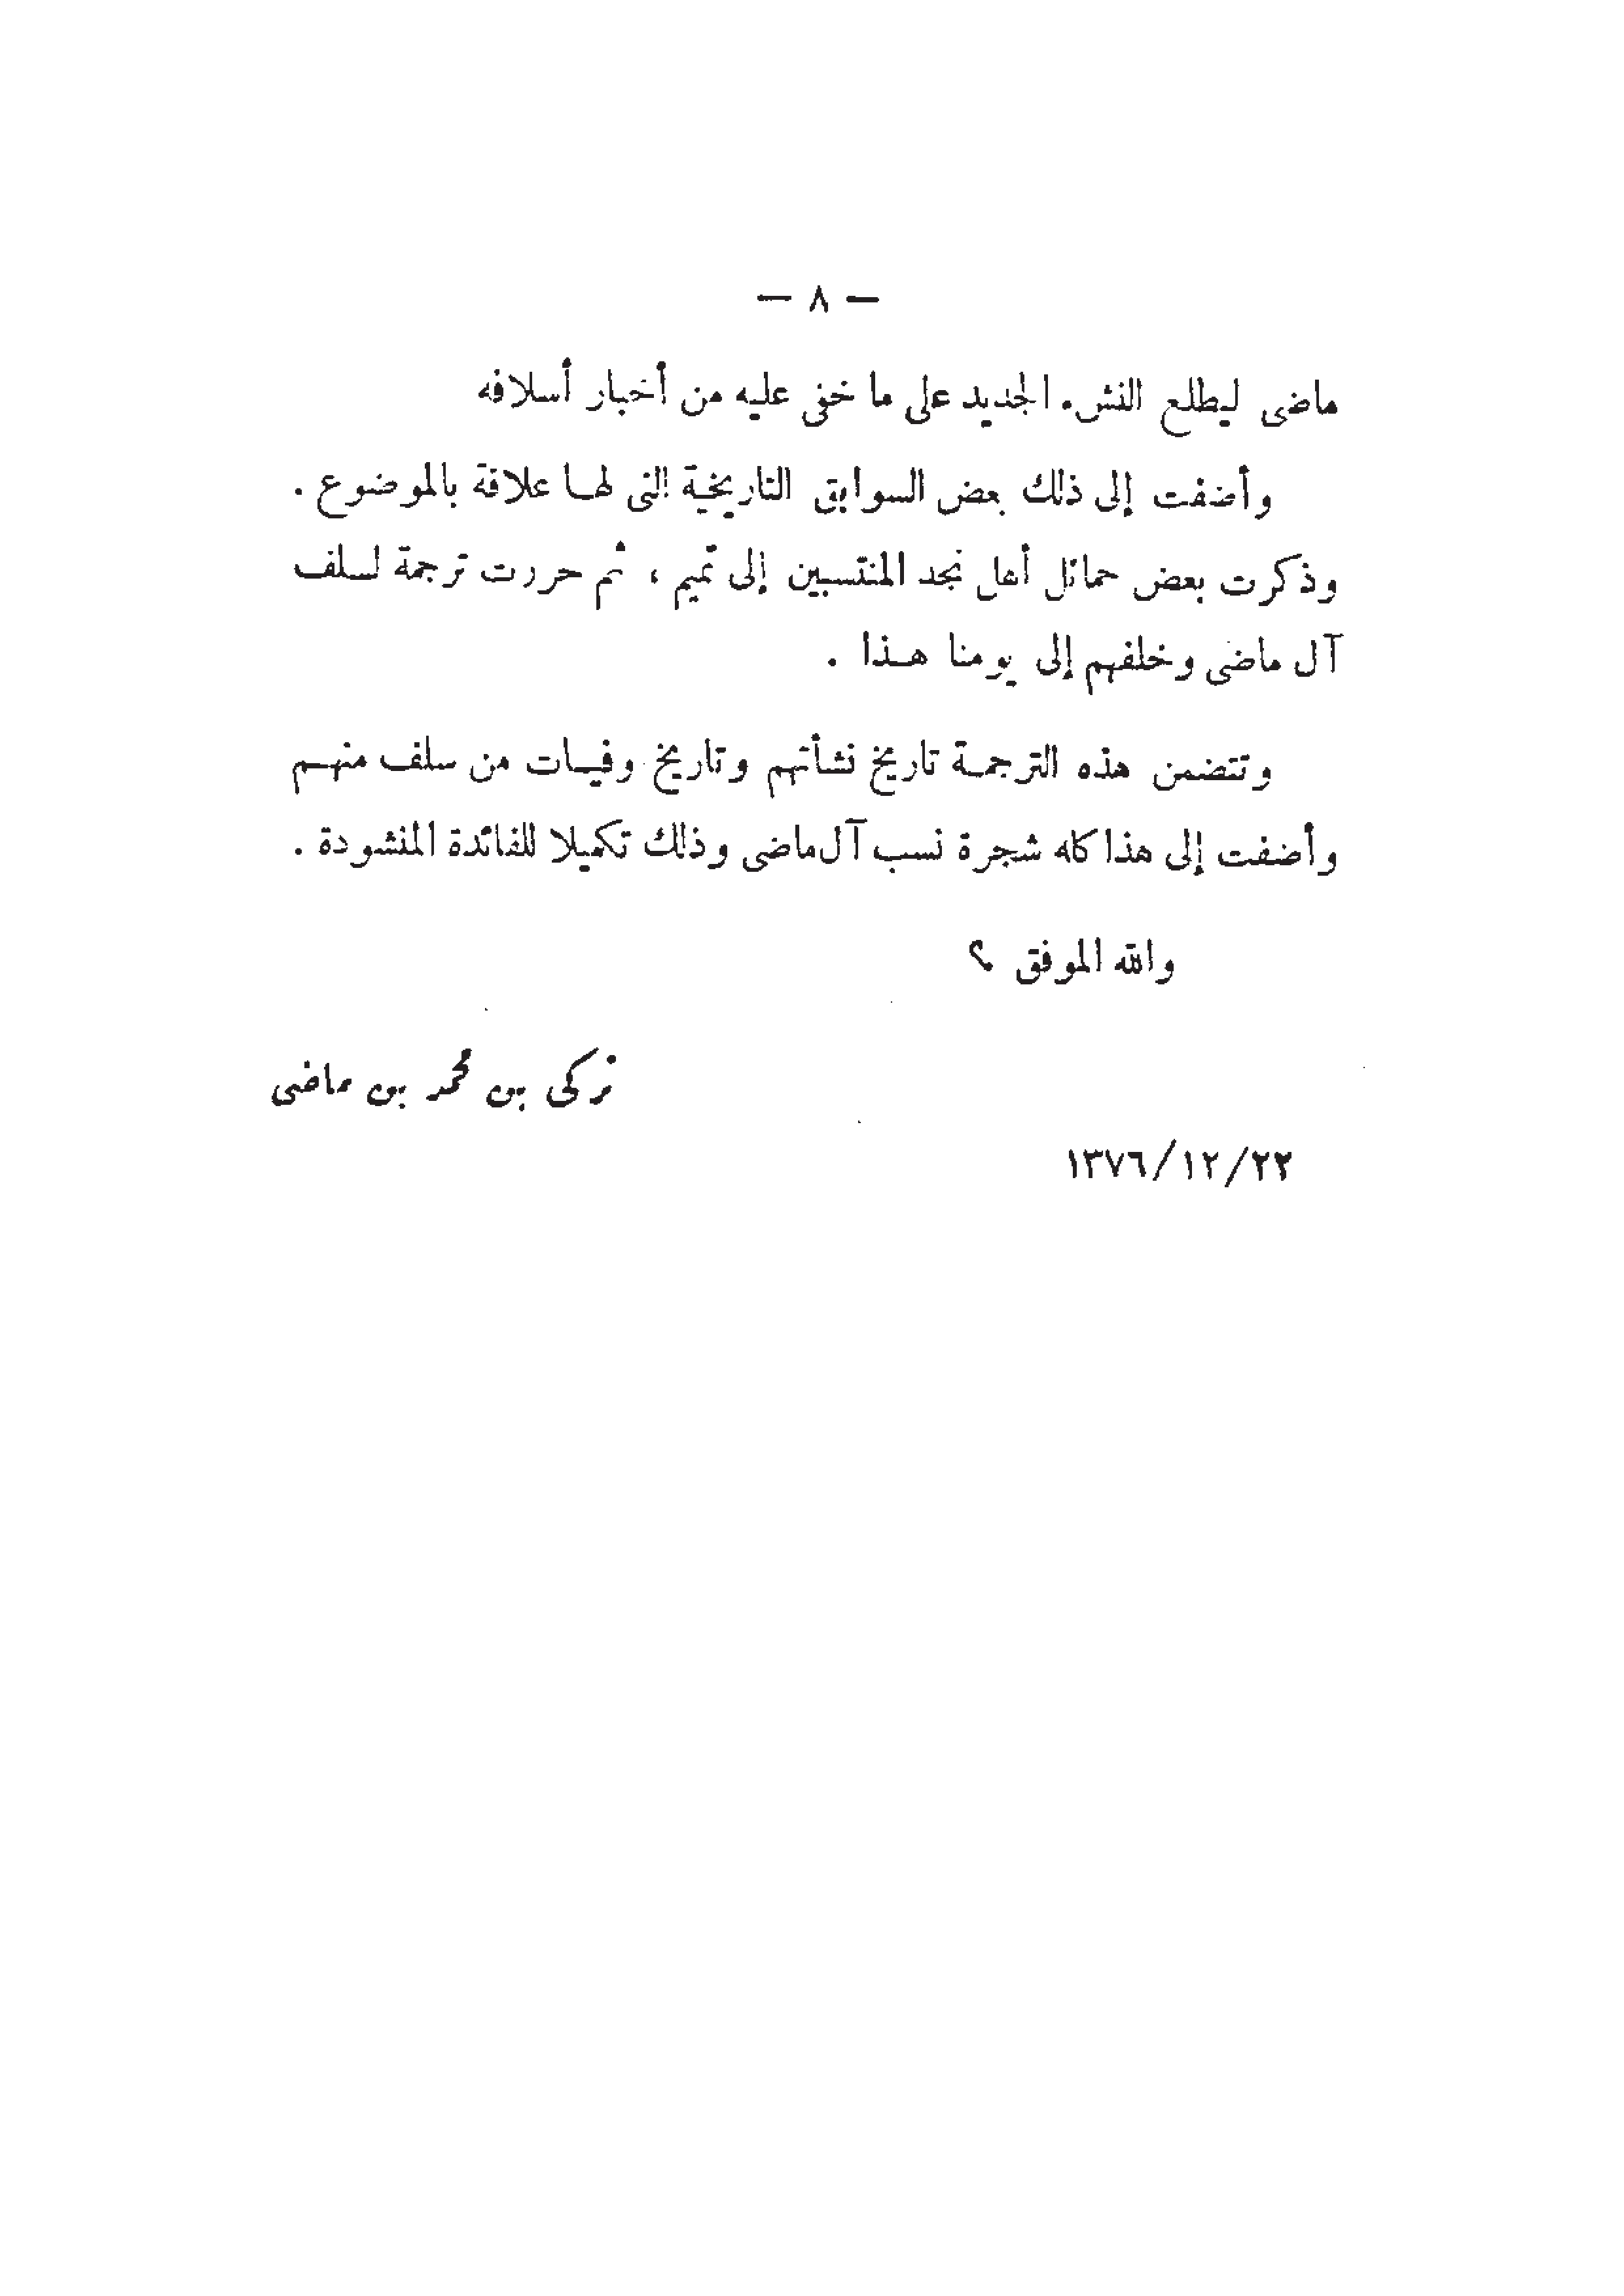 — ٨ —
ماضى ليطلع النشء الجديد على ما خفى عليه من أخبار أسلافه
وأضفت إلى ذلك بعض السوابق التاريخية التى لها علاقة بالموضوع .
وذكرت بعض حمائل أهل نجد المنتسبين إلى تميم ، ثم حررت ترجمة لسلف
آل ماضى وخلفهم إلى يومنا هذا .
وتتضمن هذه الترجمة تاريخ نشأتهم وتاريخ وفيات من سلف منهم
وأضفت إلى هذا كله شجرة نسب آل ماضى وذلك تكميلا للفائدة المنشودة .
والله الموفق
تركى بن محمد بن ماضى
١٣٧٦/١٢/٢٢